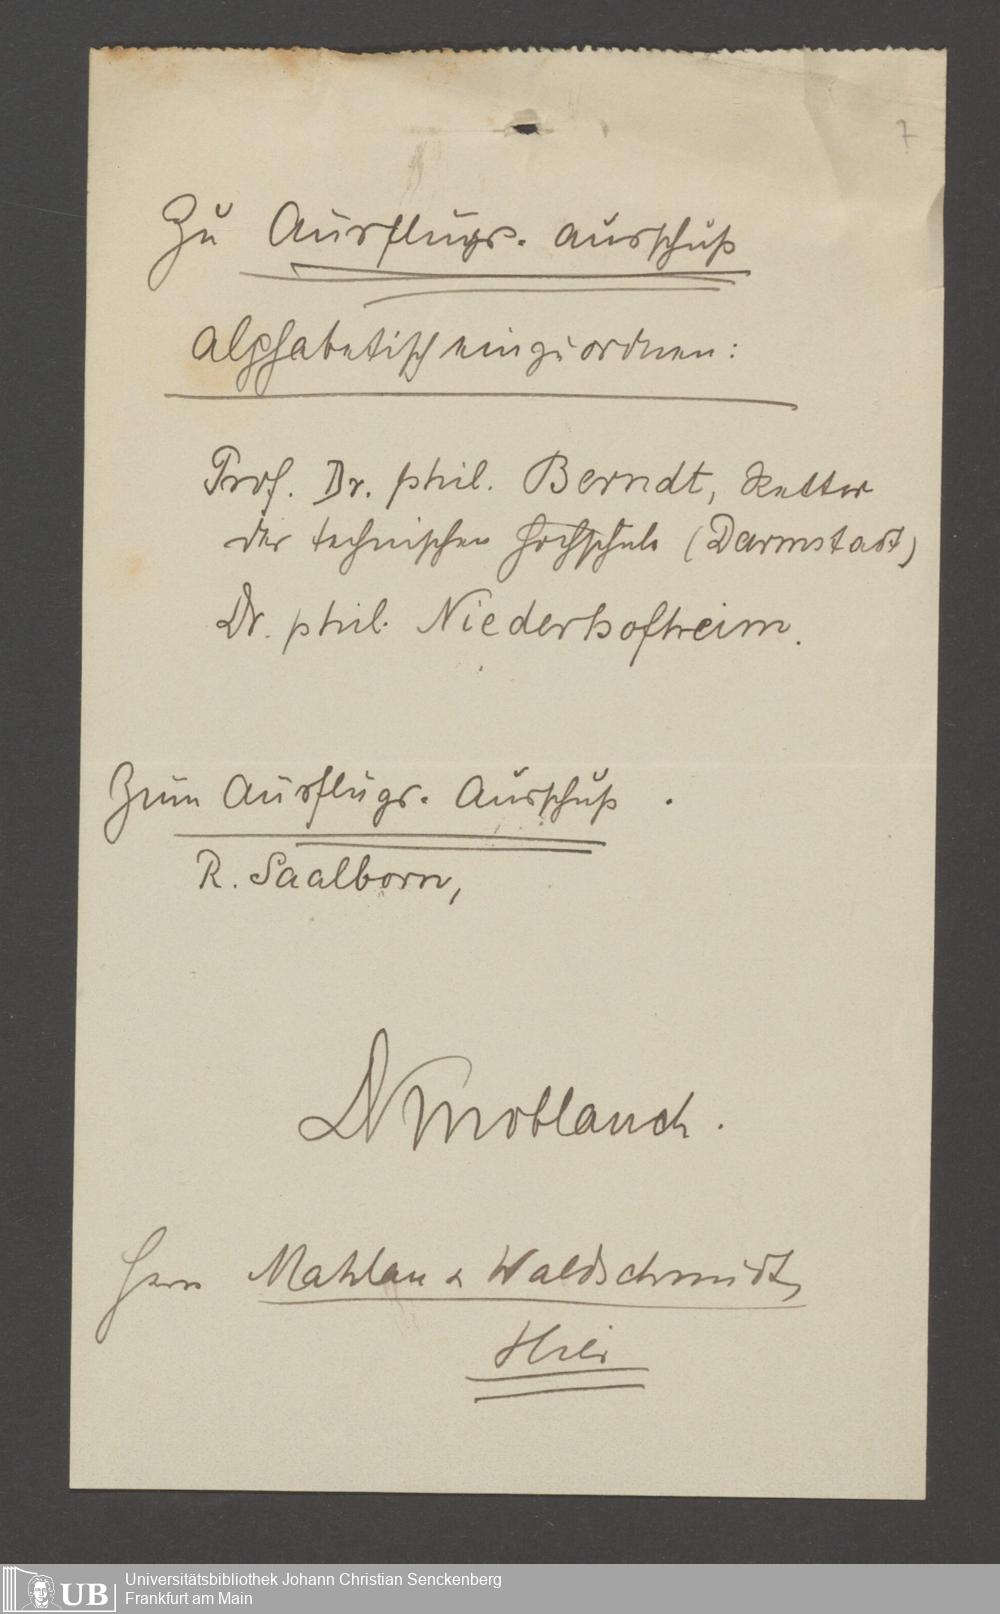 7
Zu Ausflugs-ausschuß
alphabetisch einzuordnen:
Prof. Dr. phil. Berndt, Rektor
der technischen Hochschule (Darmstadt)
Dr. phil. Niederhofheim.
Zum Ausflugs-Ausschuß.
R. Saalborn,
Knoblauch.
Herrn Mahlau & Waldschmidt,
Hier
UB
Universitätsbibliothek Johann Christian Senckenberg
Frankfurt am Main